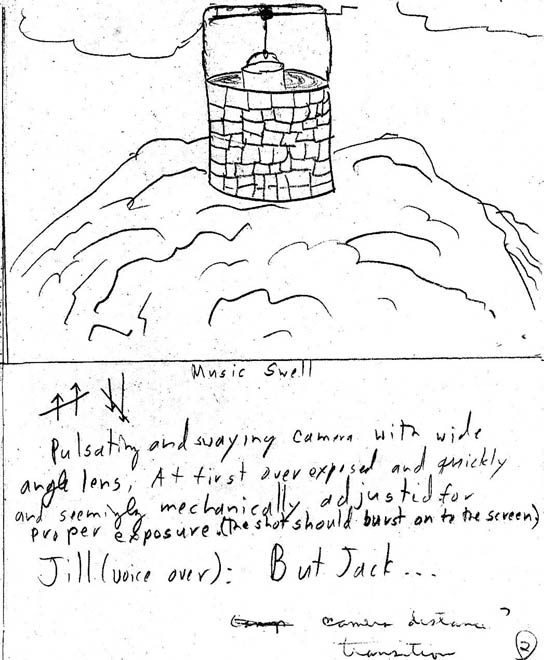 Music Swell
Pulsating and swaying camera with wide
angle lens, At first over exposed and quickly
and seemingly mechanically adjustid for
proper exposure. (The shot should burst on to the screen)
Jill (voice over): But Jack...
camera distance?
transition
2